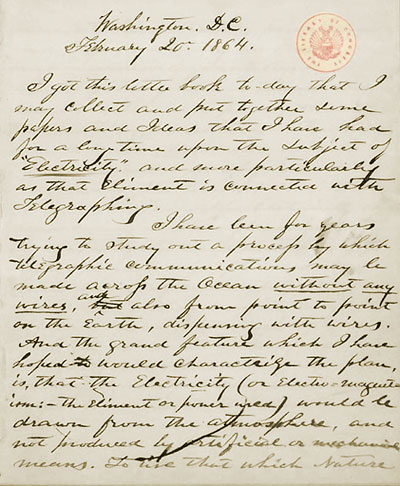 Washington. D.C.
February 20. 1864.
I got this letter book to-day that I
may collect and put together some
papers and Ideas that I have had
for a long time upon the subject of
"Electricity" and more particularly
as that Eliment is connected with
Telegraphing.
I have been for years
trying to study out a process by which
telegraphic communications may be
made across the Ocean without any
wires, and also from point to point
on the Earth, dispensing with wires.
And the grand feature which I have
hoped would charactrize the plan,
is, that the Electricity (or Electro-magnet-
ism:- the Eliment or power used) would be
drawn from the atmosphere, and
not produced by artificial or mechanical
means. To use that which Nature